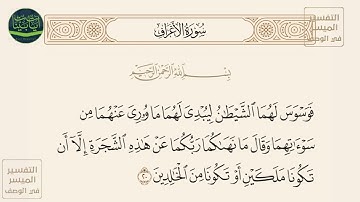 سُورَةُ الأَعْرَافِ
التفسير
الميسر
في الوصف
بِسْمِ اللَّهِ الرَّحْمَٰنِ الرَّحِيمِ
فَوَسْوَسَ لَهُمَا ٱلشَّيْطَٰنُ لِيُبْدِىَ لَهُمَا مَا وُۥرِىَ عَنْهُمَا مِن
سَوْءَٰتِهِمَا وَقَالَ مَا نَهَىٰكُمَا رَبُّكُمَا عَنْ هَٰذِهِ ٱلشَّجَرَةِ إِلَّآ أَن
تَكُونَا مَلَكَيْنِ أَوْ تَكُونَا مِنَ ٱلْخَٰلِدِينَ ٢٠
التفسير
الميسر
في الوصف